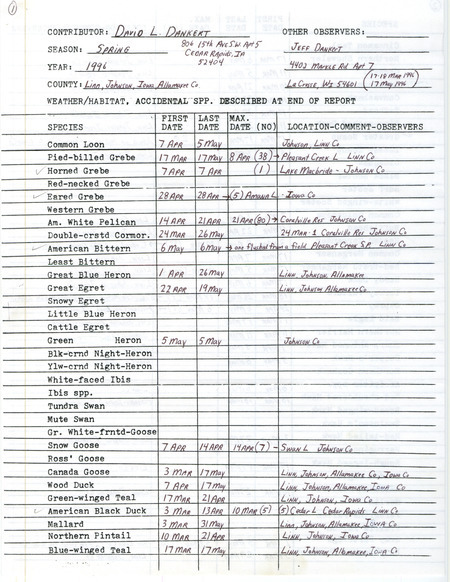 1
CONTRIBUTOR: DAVID L DANKERT OTHER OBSERVERS:
SEASON: SPRING 806 15th Ave S.W. Apt 5 JEFF DANKERT
CEDAR RAPIDS, IA
YEAR: 1996 52404 4402 Markle Rd Apt 7
(17-18 MAR 1996
COUNTY: Linn, Johnson, Iowa, Allamakee Co. La Crosse, WI 54601 (17 May 1996
WEATHER/HABITAT, ACCIDENTAL SPP. DESCRIBED AT END OF REPORT
FIRST LAST MAX.
SPECIES DATE DATE DATE (NO) LOCATION-COMMENT-OBSERVERS
Common Loon 7 APR 5 May Johnson, Linn Co
Pied-billed Grebe 17 MAR 17 May 8 APR (38) → Pleasant Creek L Linn Co
Horned Grebe 7 APR 7 APR (1) LAKE Macbride - Johnson Co
Red-necked Grebe
Eared Grebe 28 APR 28 APR → (5) Amana L - Iowa Co
Western Grebe
Am. White Pelican 14 APR 21 APR 21 APR (80) → Coralville Res Johnson Co
Double-crstd Cormor. 24 MAR 26 May 24 MAR - 1 Coralville Res Johnson Co
American Bittern 6 May 6 May → one flushed from a field Pleasant Creek S.P. Linn Co
Least Bittern
Great Blue Heron 1 APR 26 May Linn, Johnson, Allamakee
Great Egret 22 APR 19 May Linn, Johnson Allamakee Co
Snowy Egret
Little Blue Heron
Cattle Egret
Green Heron 5 May 5 May Johnson Co
Blk-crnd Night-Heron
Ylw-crnd Night-Heron
White-faced Ibis
Ibis spp.
Tundra Swan
Mute Swan
Gr. White-frntd-Goose
Snow Goose 7 APR 14 APR 14 APR (7) - Swan L Johnson Co
Ross' Goose
Canada Goose 3 MAR 17 May Linn, Johnson, Allamakee Co, Iowa Co
Wood Duck 7 APR 17 May Linn, Johnson, Allamakee, Iowa Co
Green-winged Teal 17 MAR 21 APR Linn, Johnson, Iowa Co
American Black Duck 3 MAR 13 APR 10 MAR (5) (5) Cedar L Cedar Rapids Linn Co
Mallard 3 MAR 31 May Linn, Johnson, Allamakee, Iowa Co
Northern Pintail 10 MAR 21 APR Linn, Johnson, Iowa Co
Blue-winged Teal 17 MAR 17 May Linn, Johnson, Allamakee, Iowa Co